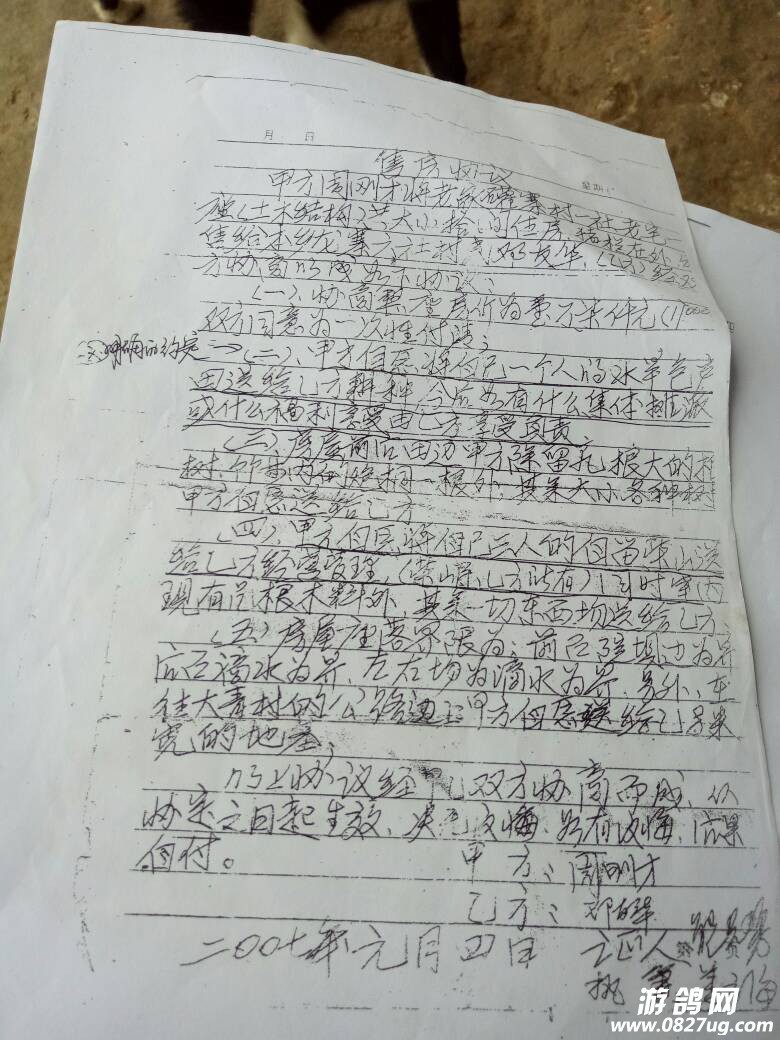 月 日
星期
售房协议
甲方周刚才将老家 寨村一社老宅二
座(土木结构)共大小拾间住房
售给本组 寨六社村民邓友华,(乙方)经双
方协商同意如下协议:
(一)、协商 座房价为壹万柒仟元(17000
双方同意为一次性付清;
明确的约定
(二)、甲方自愿将自己一个人的水旱包产
田送给乙方耕种,今后如有什么集体摊派
或什么福利享受由乙方享受负责
(三)、房屋前后田边甲方除留 根大的
树, 一根外,其余大小各种树
甲方自愿送给乙方
(四)、甲方自愿将自己三人的自留柴山送
给乙方经营管理,(柴山归乙方所有)同时室内
现有 根木料外,其余一切东西均送给乙方,
(五)、房屋座落界限为:前至 坝边为界
后至滴水为界,左右均为滴水为界,另外,在
往大青村的公路边上甲方自愿 给乙方 米
宽的地基;
以上协议经 双方协商而成,从
协定之日起生效,决无反悔,如有反悔,后果
自付。
甲方:周刚才
乙方:邓友华
二00七年元月四日 证人
执笔
游鸽网
www.0827ug.com